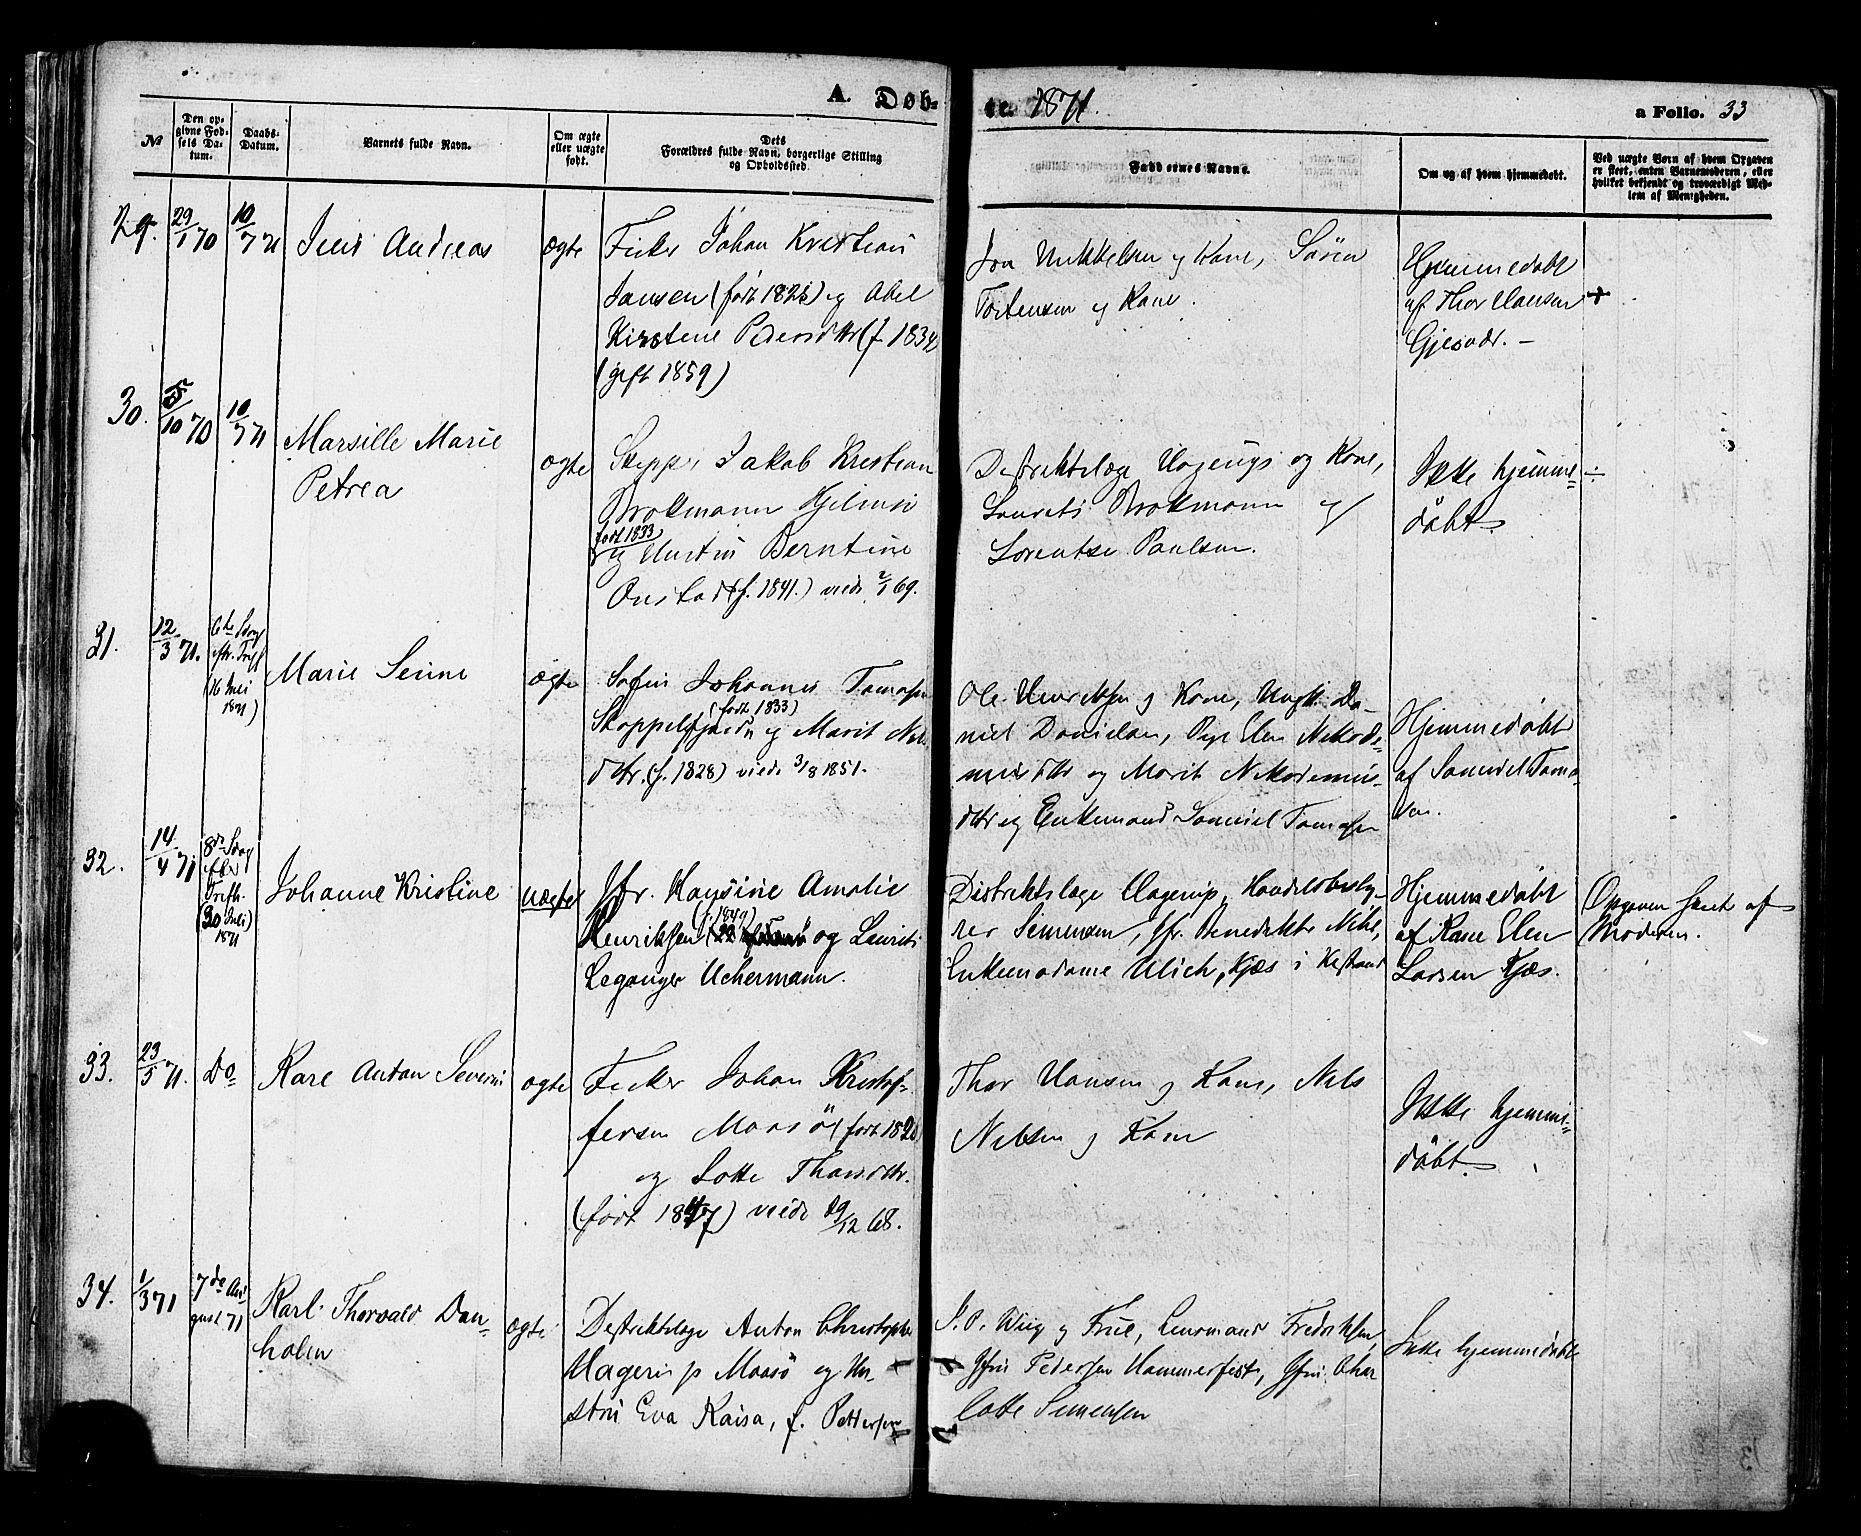 A. Døb-
te. 1871.
a Folio. 33
№
Den opgivne Fødsels Datum.
Daabs-Datum.
Barnets fulde Navn.
Om ægte eller uægte født.
Dets Forældres fulde Navn, borgerlige Stilling og Opholdssted.
Faddernes Navne.
Om og af hvem hjemmedøbt.
Ved uægte Børn af hvem Opgaven er skeet, enten Barnemoderen, eller hvilket bekjendt og troværdigt Medlem af Menigheden.
29. 29/1 70 10/7 71 Jens Andreas ægte
Fisker Johan Kristian
Jansen (født 1825) og Abel
Kirstine Pedersdttr (f. 1834
(gift 1859)
Jon Mikkelsen og Kone, Sören
Tostensen og Kone.
Hjemmedøbt
af Thor Hansen +
Gjesvær. –
30. 10 70 10/7 71 Marsille Marie
Petrea
ægte
Skipper Jakob Kristian
Brokmann Hjelmsö
født 1833
og Berntine
Onstad (f. 1841.) viede 2/1 69.
Distriktslæge Hagerup og Kone,
Laurits Brokmann og
Lorentse Paulsen.
Ikke hjemme= ÷
døbt
31. 12/3 71. 6te Søndg
eftr. Trefh
(16 Juli
1871)
Marie Serine
ægte
Søfin Johannes Tomasen
(født 1833)
Skoppelfjorden og Marit Nils
dttr. (f. 1828) viede 3/8 1851.
Ole Henriksen og Kone, Ungk. Da–
niel Danielsen, Pige Elen Nikode=
musdttr og Marit Nikodemus=
dttr og Enkemand Samuel Tomasen
Hjemmedøbt
af Samuel Toma
sen.
32. 14/4 71 8de Søndg
efter
Trefh.
(30 Juli)
1871
Johanne Kristine
uægte
Jfr. Hansine Amalie
(f. 1849)
Henriksen og Laurits
Leganger Uchermann.
Distriktslæge Hagerup, Handelsbesty-
rer Simensen, Jfr. Benedikte Nihl,
Enkemadame Ulich, Kjæs i Kistrand
Hjemmedøbt
af Kone Elen
Larsen Kjæs.
Opgaven skeet af
Moderen.
33. 23/5 71. Do
Kare Anton Severin
ægte
Fisker Johan Kristof=
fersen Maasö (født 1820
og Lotte Thorsdttr.
(født 1847) viede 29/12 68.
Thor Hansen og Kone, Nils
Nilsen og Kone
Ikke hjemme=
døbt
34. 1/3 71 7de Au
gust 71
Karl Thorvald Dan=
holm
ægte
Distriktslæge Anton Christopher
Hagerup Maasö og Hu-
stru Eva Kaisa, f. Pettersen
J. O. Wiig og Frue, Lensmand Fredriksen,
Jfru Pedersen Hammerfest, Jfru. Char
lotte Simensen
Ikke hjemmedøbt